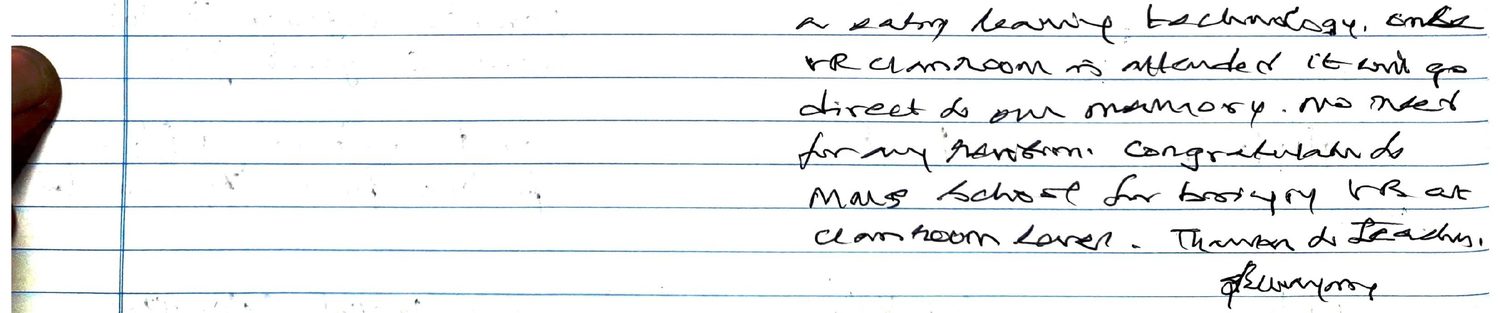 a easy learning technology. once
VR classroom is attended it will go
direct to our memory. no need
for any revision. Congratulate to
school for bringing VR at
classroom level. Thanks to Teachers.